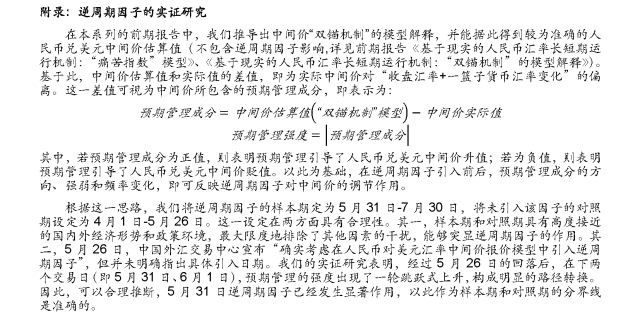 附录：逆周期因子的实证研究
在本系列的前期报告中，我们推导出中间价“双锚机制”的模型解释，并能据此得到较为准确的人
民币兑美元中间价估算值（不包含逆周期因子影响,详见前期报告《基于现实的人民币汇率长短期运
行机制：“痛苦指数”模型》、《基于现实的人民币汇率长短期运行机制：“双锚机制”的模型解释》）。
基于此，中间价估算值和实际值的差值，即为实际中间价对“收盘汇率+一篮子货币汇率变化”的偏
离。这一差值可视为中间价所包含的预期管理成分，即表示为：
预期管理成分 = 中间价估算值(“双锚机制”模型) − 中间价实际值
预期管理强度 = |预期管理成分|
其中，若预期管理成分为正值，则表明预期管理引导了人民币兑美元中间价升值；若为负值，则表明
预期管理引导了人民币兑美元中间价贬值。以此为基础，在逆周期因子引入前后，预期管理成分的方
向、强弱和频率变化，即可反映逆周期因子对中间价的调节作用。
根据这一思路，我们将逆周期因子的样本期定为 5 月 31 日-7 月 30 日，将未引入该因子的对照
期设定为 4 月 1 日-5 月 26 日。这一设定在两方面具有合理性。其一，样本期和对照期具有高度接近
的国内外经济形势和政策环境，最大限度地排除了其他因素的干扰，能够突显逆周期因子的作用。其
二，5 月 26 日，中国外汇交易中心宣布“确实考虑在人民币对美元汇率中间价报价模型中引入逆周
期因子”，但并未明确指出具体引入日期。我们的实证研究表明，经过 5 月 26 日的回落后，在下两
个交易日(即 5 月 31 日、6 月 1 日)，预期管理的强度出现了一轮跳跃式上升,构成明显的路径转换。
因此，可以合理推断，5 月 31 日逆周期因子已经发生显著作用，以此作为样本期和对照期的分界线
是准确的。